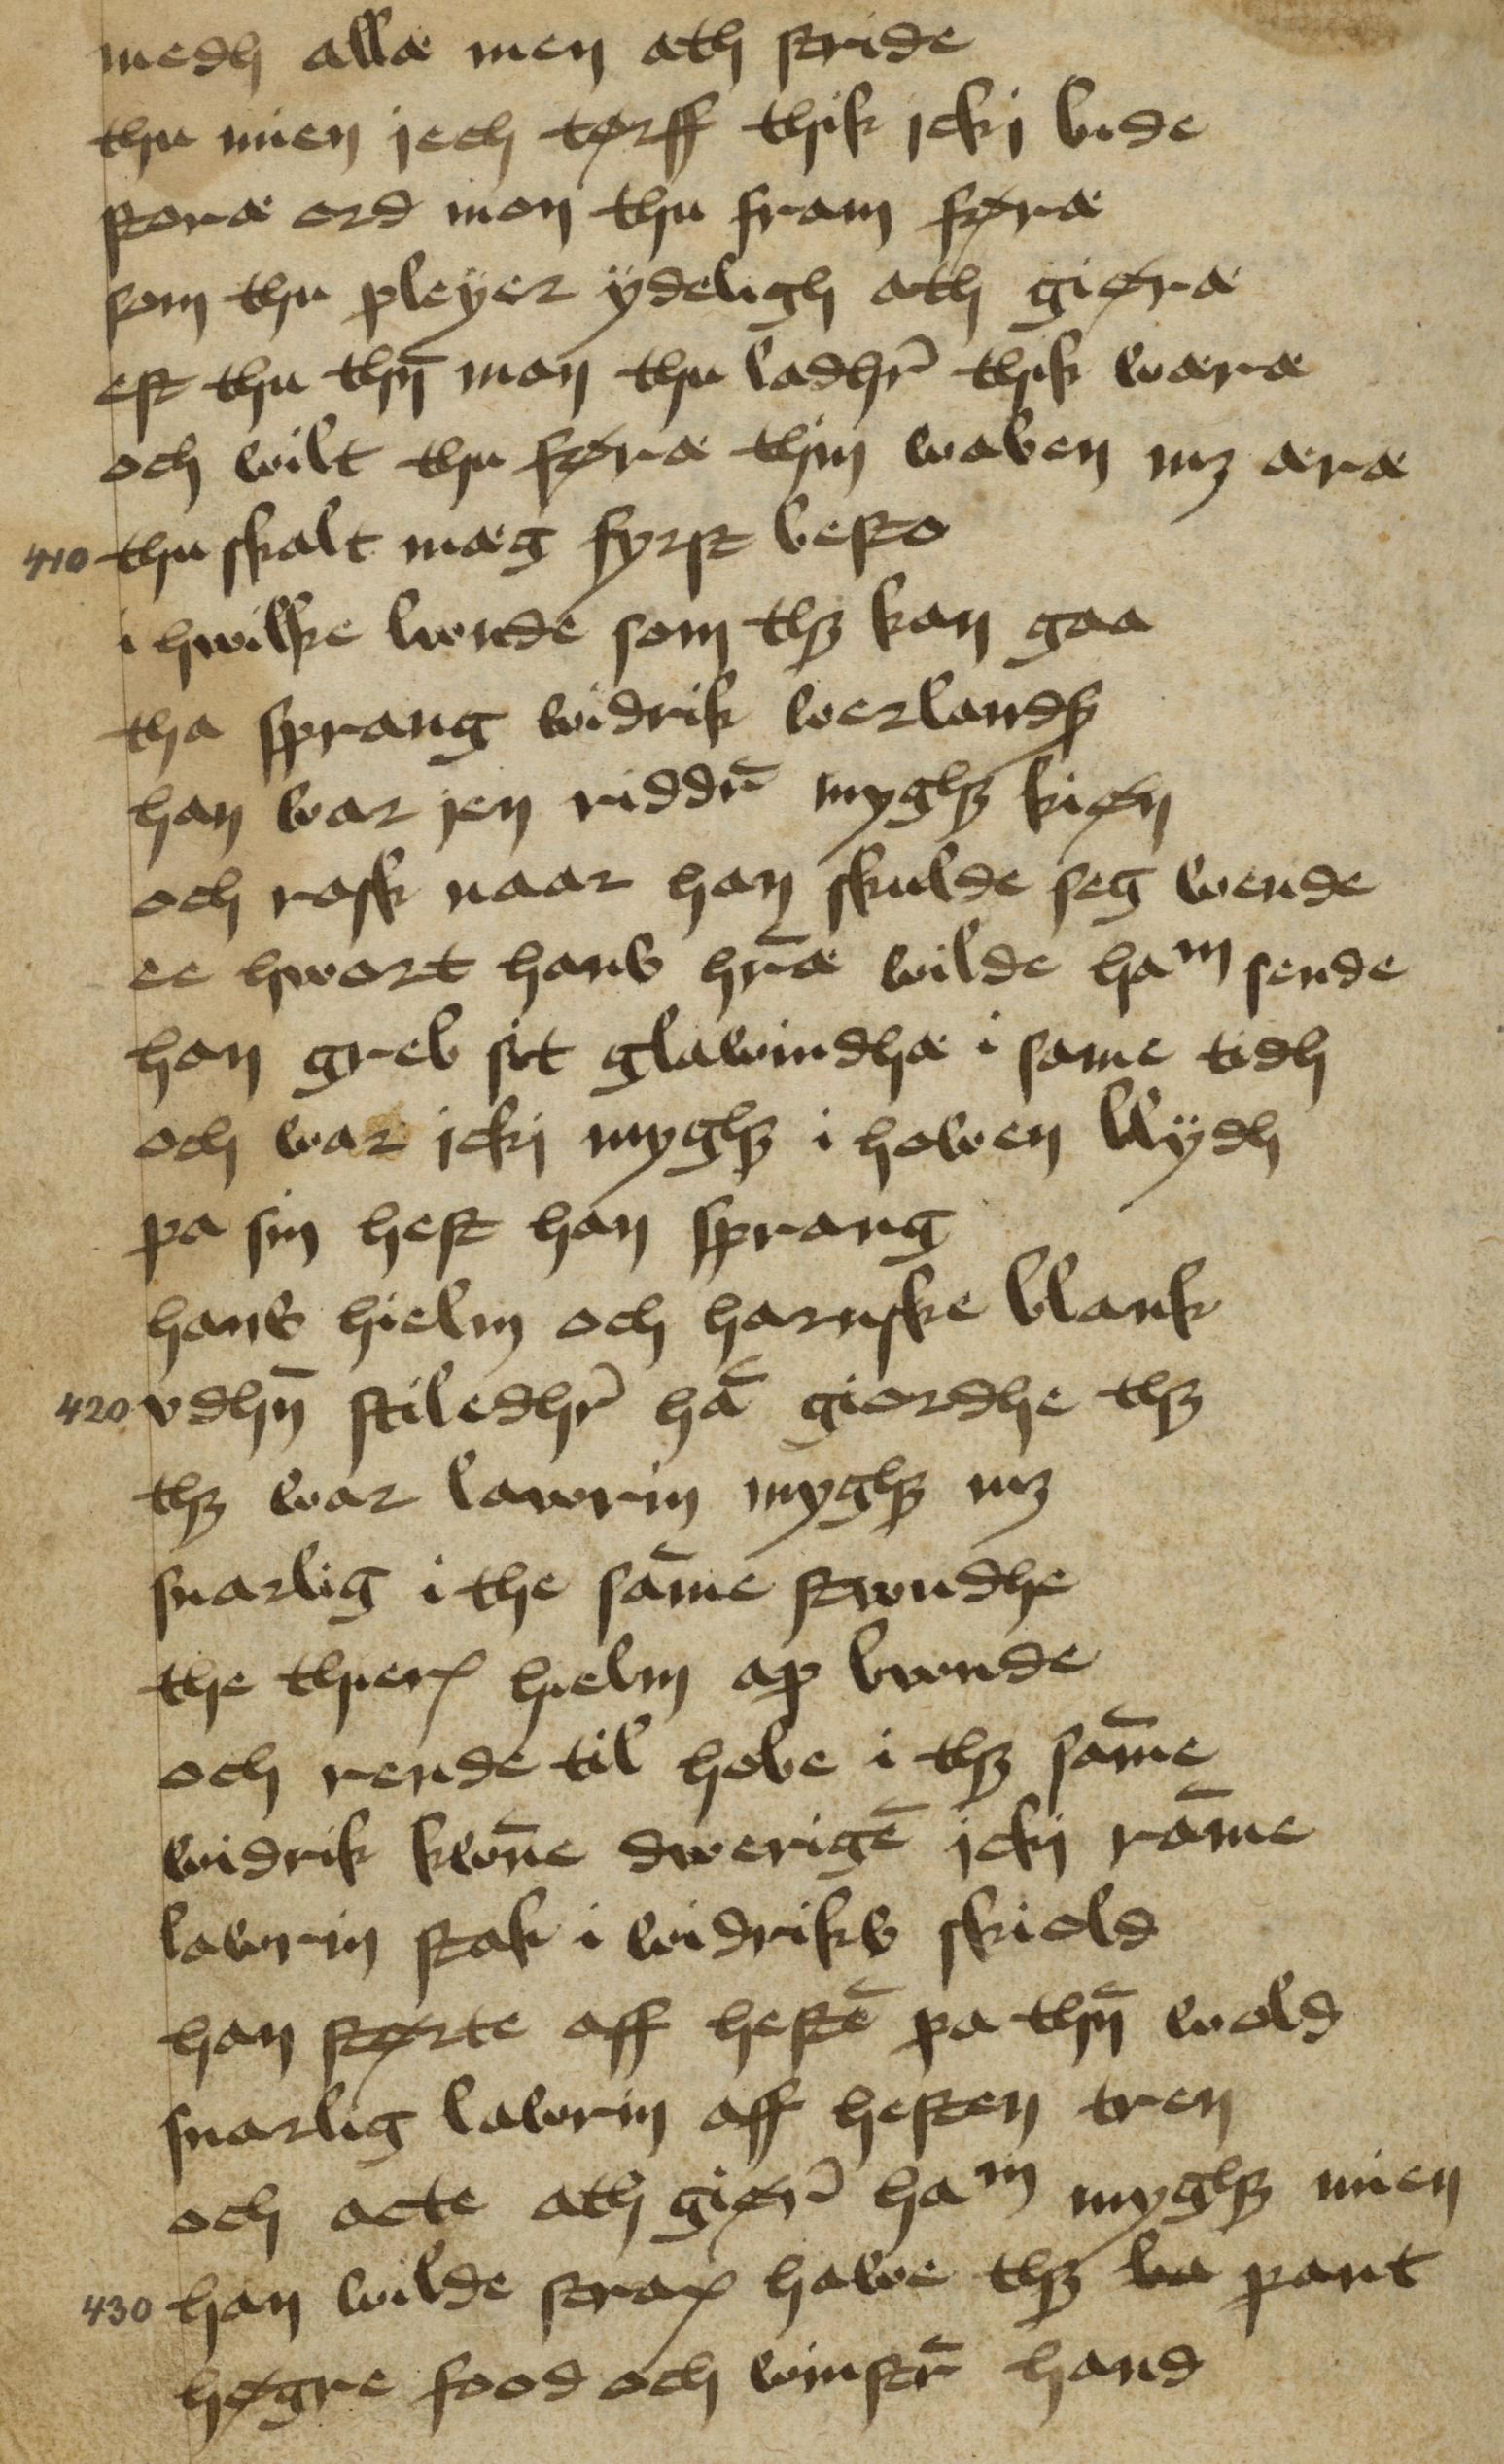 medh allæ men ath stride
thu mien jech tørff thik jckj bide
storæ ord mon thu fram føræ
som thu pleÿer ÿdeligh ath giøræ
est thu thn̄ man thu ladhr̄ thik wæræ
och wilt thu føræ thin waben mꝫ æræ
410 thu skalt mæg fyrst besto
i hwilke lwnde som thꝫ kan gaa
tha sprang widrik werlandß
han war jen riddr̄ myghꝫ kiøn
och rask naar han skulde seg wende
ee hwort hans hr̄æ wilde haᵐ sende
han greb sit glawindhæ i same tidh
och war jckj myghꝫ i howen blÿdh
pa sin hest han sprang
hans hielm och harnske blank
420 vdhn̄ stiledhr̄ hā giordhe thꝫ
thꝫ war lawrin myghꝫ mꝫ
snarlig i the sāme stwndhe
the thieræ hielm ap bwnde
och rende til hobe i thꝫ sām̄e
widrik kwn̄e dwerigē jckj rām̄e
lawrin stak i widriks skiold
han størte aff hestē pa thn̄ wold
snarlig lawrin aff hesten tren
och acte ath giør̄ haᵐ myghꝫ mien
430 han wilde strax hawe thꝫ ba pant
høgre food och winstr̄ hand